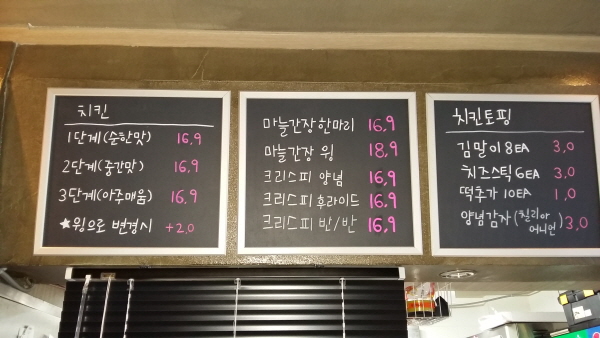 치킨
1단계(순한맛) 16.9
2단계(중간맛) 16.9
3단계(아주매움) 16.9
★윙으로 변경시 +2.0
마늘간장한마리 16.9
마늘간장 윙 18.9
크리스피 양념 16.9
크리스피 후라이드 16.9
크리스피 반/반 16.9
치킨토핑
김말이 8EA 3.0
치즈스틱 6EA 3.0
떡추가 10EA 1.0
양념감자 (칠리아 어니언) 3.0